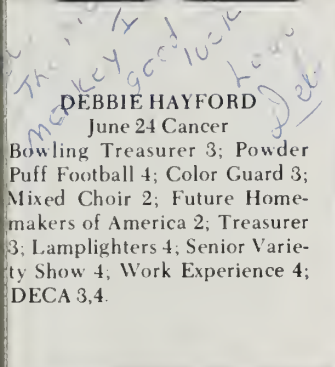 good luck
Love
Deb
DEBBIE HAYFORD
June 24 Cancer
Bowling Treasurer 3; Powder
Puff Football 4; Color Guard 3;
Mixed Choir 2; Future Home-
makers of America 2; Treasurer
3; Lamplighters 4; Senior Varie-
ty Show 4; Work Experience 4;
DECA 3,4.